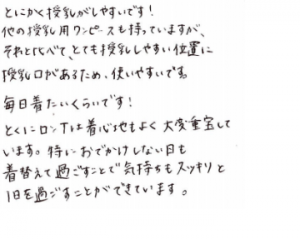 とにかく授乳がしやすいです!
他の授乳用ワンピースも持っていますが、
それと比べて、とても授乳しやすい位置に
授乳口があるため、使いやすいです。
毎日着たいくらいです!
とくにロンTは着心地もよく大変重宝して
います。特におでかけしない日も
着替えて過ごすことで気持ちもスッキリと
1日を過ごすことができています。